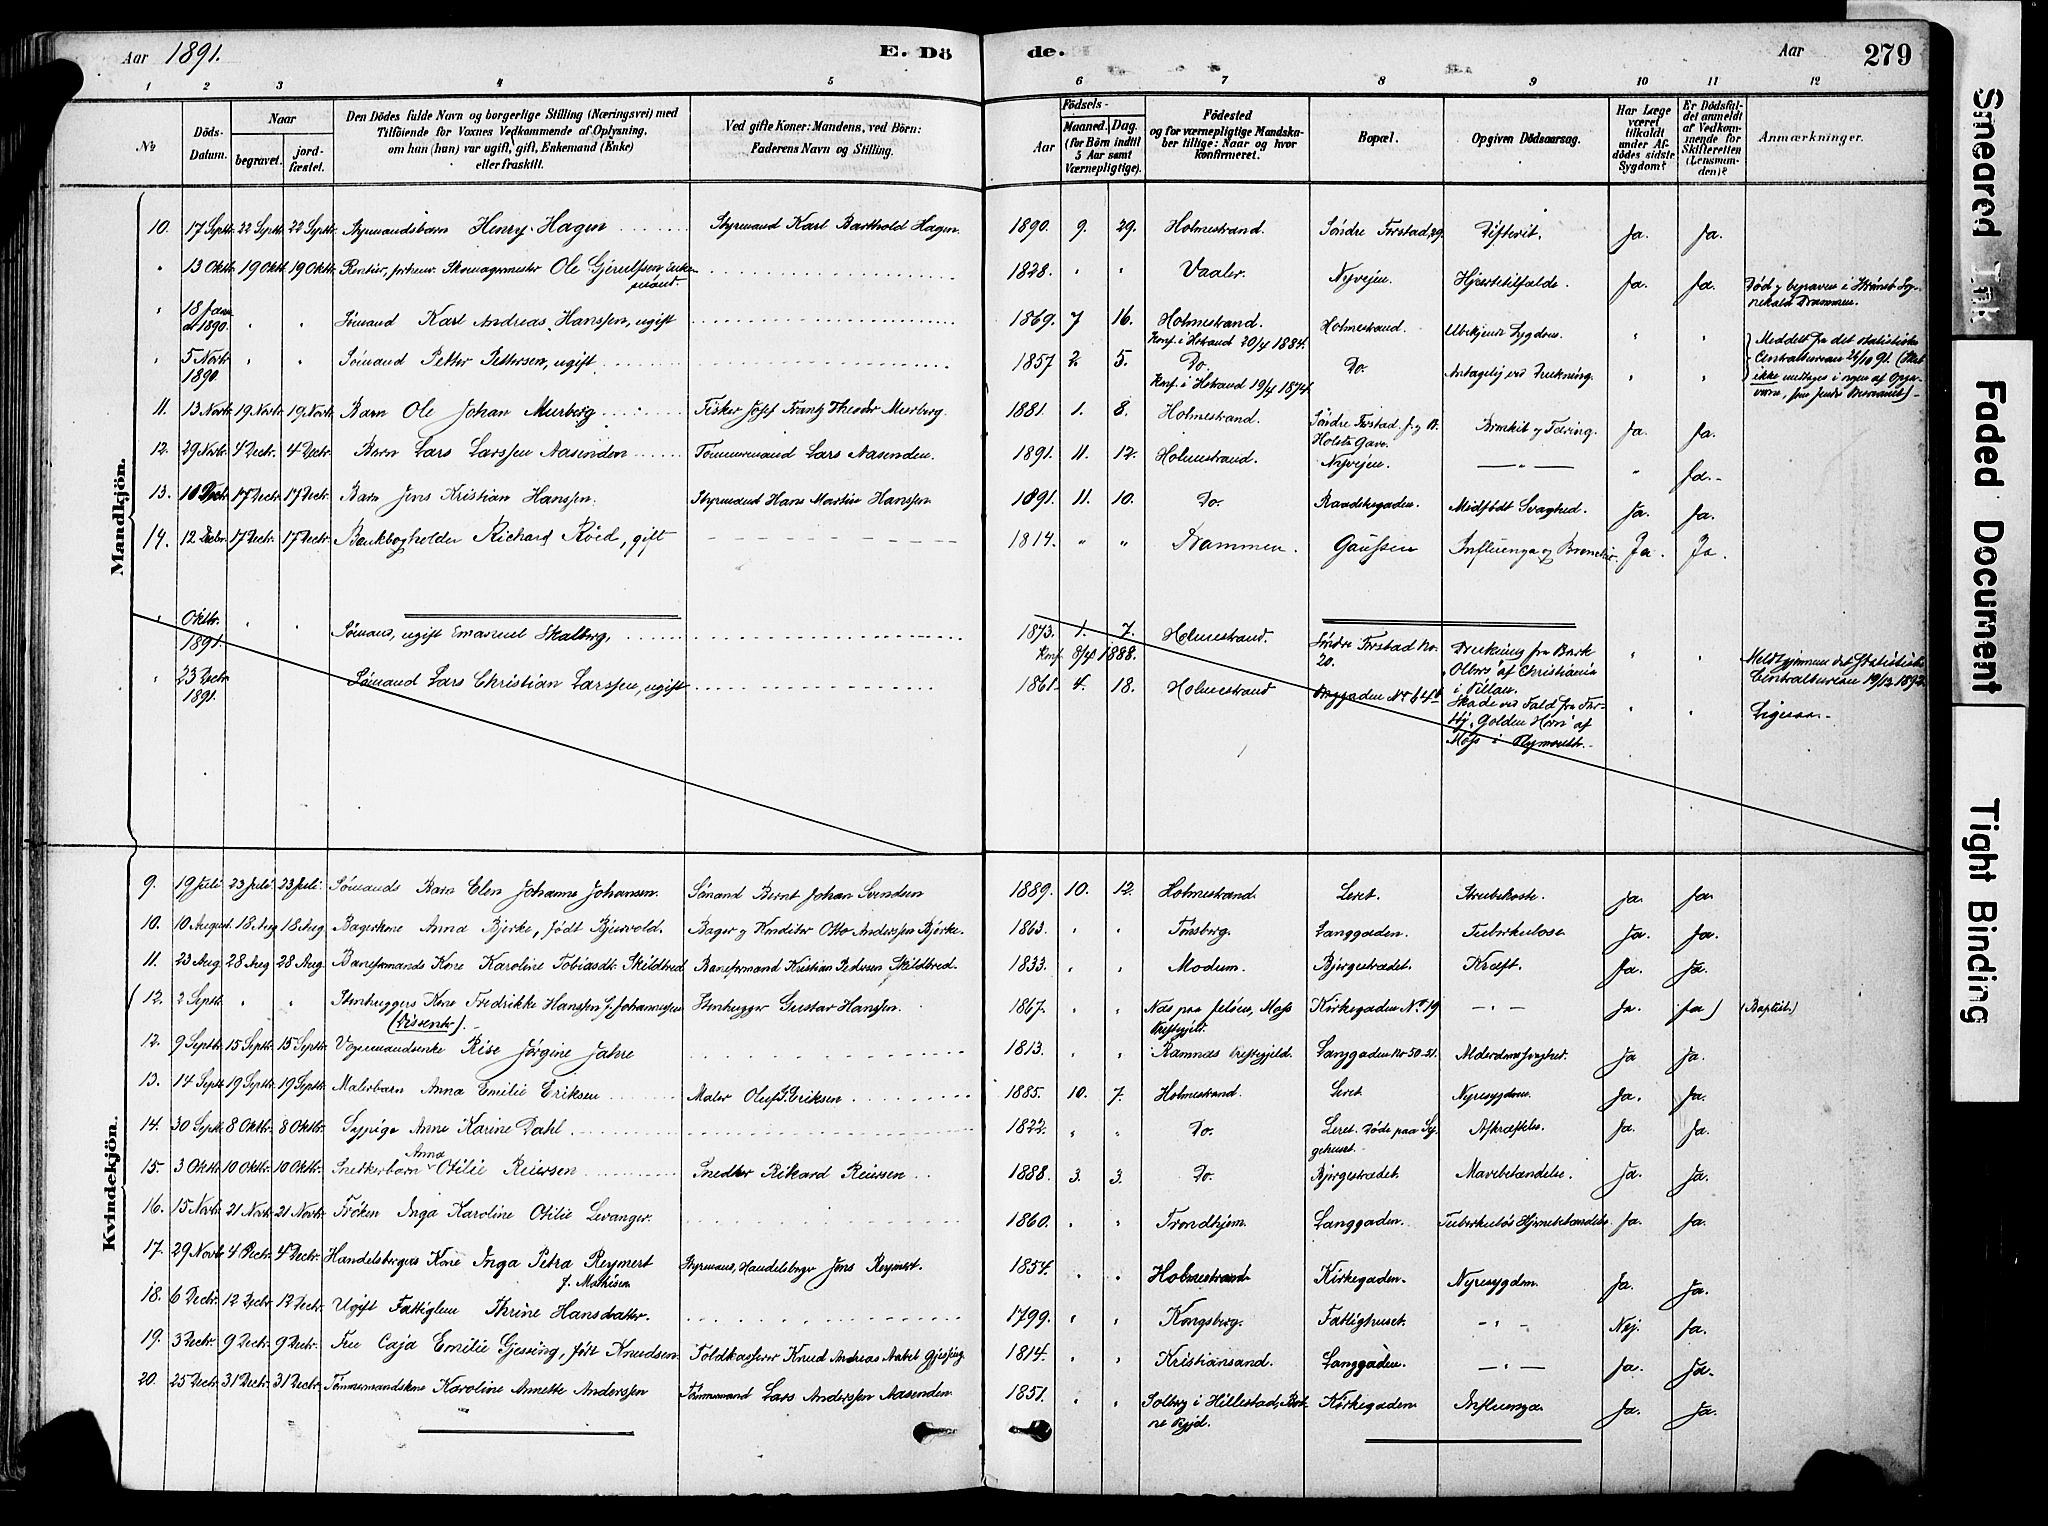 Aar 1891.
E. Dö
de.
Aar
279
1 2 3 4 5 6 7 8 9 10 11 12
No
Döds-Datum.
Naar
begravet.
jordfæstet.
Den Dödes fulde Navn og borgerlige Stilling (Næringsvei) med
Tilföiende for Voxnes Vedkommende af Oplysning,
om han (hun) var ugift, gift, Enkemand (Enke)
eller fraskilt.
Ved gifte Koner: Mandens, ved Börn:
Faderens Navn og Stilling.
Födsels-
Aar
Maaned. Dag.
(for Börn indtil
5 Aar samt
Værnepligtige).
Födested
og for værnepligtige Mandska-
ber tillige: Naar og hvor
konfirmeret.
Bopæl.
Opgiven Dödsaarsag.
Har Læge
været
tilkaldt
under Af-
dödes sidste
Sygdom?
Er Dödsfal-
det anmeldt
af Vedkom-
mende for
Skifteretten
(Lensman-
den)?
Anmærkninger.
Mandkjön.
10. 17 Septr. 22 Septr. 22 Septr. Styrmandsbarn Henry Hagen Styrmand Karl Barthold Hagen. 1890. 9. 29. Holmestrand. Söndre Forstad, 29. Difterit. Ja. Ja.
" 13 Oktr. 19 Oktr. 19 Oktr. Rentier, forhenv. Skomagermester Ole Gjerulfsen, Enkemand. 1828. " " Vaaler. Nyvejen. Hjertetilfælde. Ja. Ja. Död og begraven i Strömsö Drammen.
" 18 Jan 1890. " " Sömand Karl Andreas Hanssen, ugift 1869. 7 16. Holmestrand. Konf. i Hstrand 20/4 1884. Holmestrand. Ubekjendt Sygdom. " "
" 5 Novbr 1890. " " Sömand Petter Pettersen, ugift 1857 2. 5. Do. Konf. i Hstrand 19/4 1874. Do. Antagelig ved Drukning. " " Meddelt fra det statistiske Centralbureau 26/10 91. (Skal ikke medtages i nogen af Opgaverne,
11. 13 Novbr. 19 Novbr. 19 Novbr. Barn Ole Johan Murberg Fisker Josef Frantz Theodor Murberg. 1881. 1. 8. Holmestrand. Söndre Forstad Holsts Gave. Bronkit og Tæring. Ja. Ja.
12. 29 Novbr. 4 Decbr. 4 Decbr. Barn Lars Larssen Aasenden Tömmermand Lars Aasenden. 1891. 11. 12. Holmestrand. Nyvejen. — " — " Ja.
13. 10 Decbr. 17 Decbr. 17 Decbr. Barn Jens Kristian Hanssen. Styrmand Hans Martin Hanssen 1891. 11. 10. Do. Raadhusgaden. Medfödt Svaghed. Ja. Ja.
14. 12 Decbr. 17 Decbr. 17 Decbr. Bankbogholder Richard Röed, gift 1814. " " Drammen. Gausen Influenza og Bronchit. Ja. Ja.
" Oktbr. 1891. " " Sömand, ugift Emanuel Skalberg, 1873. 1. 7. Konf. 8/4 1888. Holmestrand. Söndre Forstad No. 20. Drukning fra Bark "Olbers" af Christiania i Pillau. " " Meldt gjennem det Statistiske Centralbureau 19/12 1892.
" 23 Decbr. 1891. Sömand Lars Christian Larssen, ugift 1861. 4. 18. Holmestrand Skade ved Fald fra Fartöj "Golden Horn" af Moss i Plymouth. " " Ligesaa.
Kvindekjön.
9. 19 Juli 23 Juli. 23 Juli. Sömands Barn Elen Johanne Johansen. Sömand Bernt Johan Svendsen 1889. 10. 12. Holmestrand. Leret. Strubehoste. Ja. Ja.
10. 10 August. 18 Aug 18 Aug. Bagerkone Anna Bjerke, födt Bjervold. Bager og Konditor Otto Anderssen Bjerke. 1863. " " Tönsberg. Langgaden. Tuberkulose Ja. Ja.
11. 23 Aug. 28 Aug 28 Aug. Baneformands Kone Karoline Tobiasdt. Skildbred Baneformand Kristian Pedersen Skildbred. 1833. " " Modum. Bjergestrædet. Kræft. Ja. Ja.
(12. 2 Septr. " " Stenhuggers Kone Fredrikke Hanssen f. Johannessen (Dissenter). Stenhugger Gustav Hanssen. 1867. " " Næs paa Jelöen, Moss Prestegjeld. Kirkegaden No. 19 — " — Ja. Ja) (Baptist.)
12. 9 Septr. 15 Septr. 15 Septr. Vognmandsenke Rise Jörgine Jahre 1813. " " Ramnæs Prestegjeld. Langgaden No 50-51. Alderdomssvaghed. Ja Ja.
13. 14 Septr. 19 Septr. 19 Septr. Malerbarn Anna Emilie Eriksen Maler Oluf G. Eriksen 1885. 10. 7. Holmestrand. Leret. Nyresygdom. Ja. Ja.
14. 30 Septr. 8 Oktbr. 8 Oktbr. Sypige Anne Karine Dahl. 1822. " " Do. Leret. Döde paa Sygehuset. Afkræftelse. Ja. Ja.
15. 3 Oktbr. 10 Oktbr. 10 Oktbr. Snedkerbarn Anna Otilie Reiersen Snedker Rikard Reiersen 1888. 3. 3. Do. Bjergestrædet. Mavebetændelse. Ja. Ja.
16. 15 Novbr. 21 Novbr. 21 Novbr. Fröken Inga Karoline Otilie Levanger. 1860. " " Trondhjem. Langgaden. Tuberkulös Hjernebetændelse. Ja. Ja.
17. 29 Novbr. 4 Decbr. 4 Decbr. Handelsborgers Kone Inga Petra Reymert f. Mathisen Styrmand, Handelsborger Jens Reymert. 1854. " " Holmestrand. Kirkegaden. Nyresygdom. Ja. Ja.
18. 6 Decbr. 12 Decbr. 12 Decbr. Ugift Fattiglem Thrine Hansdatter. 1799. " " Kongsberg. Fattighuset. — " — Nej. Ja.
19. 3 Decbr. 9 Decbr. 9 Decbr. Fru Caja Emilie Gjessing, födt Knudsen. Toldkasserer Knud Andreas Aabel Gjessing. 1814. " " Kristiansand. Langgaden. — " — Ja. Ja.
20. 25 Decbr. 31 Decbr. 31 Decbr. Tömmermandskone Karoline Annette Anderssen Tömmermand Lars Anderssen Aasenden. 1851. " " Solberg i Hillestad, Botne Pgjd. Kirkegaden Influenza. Ja. Ja.
Smeared Ink
Faded Document
Tight Binding